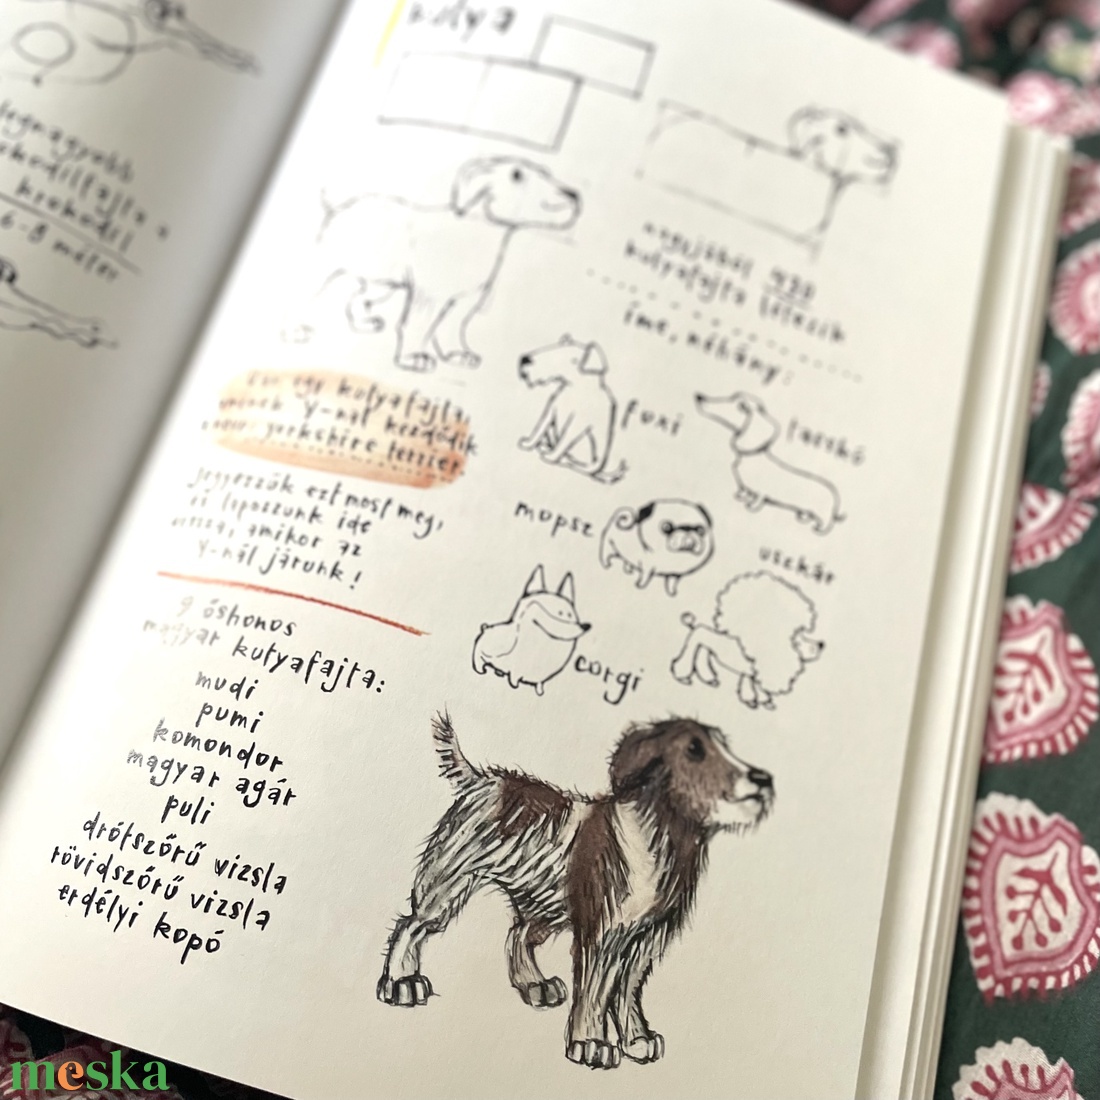 legnagyobb
krokodilfajta a
krokodil
6-8 méter
kutya
nagyjából
kutyafajta létezik
íme, néhány:
Van egy kutyafajta,
aminek Y-nal kezdődik
yorkshire terrier
jegyezzük ezt most meg,
és lapozzunk ide
vissza, amikor az
Y-nál járunk!
foxi
tacskó
mopsz
uszkár
corgi
9 őshonos
magyar kutyafajta:
mudi
pumi
komondor
magyar agár
puli
drótszőrű vizsla
rövidszőrű vizsla
erdélyi kopó
meska